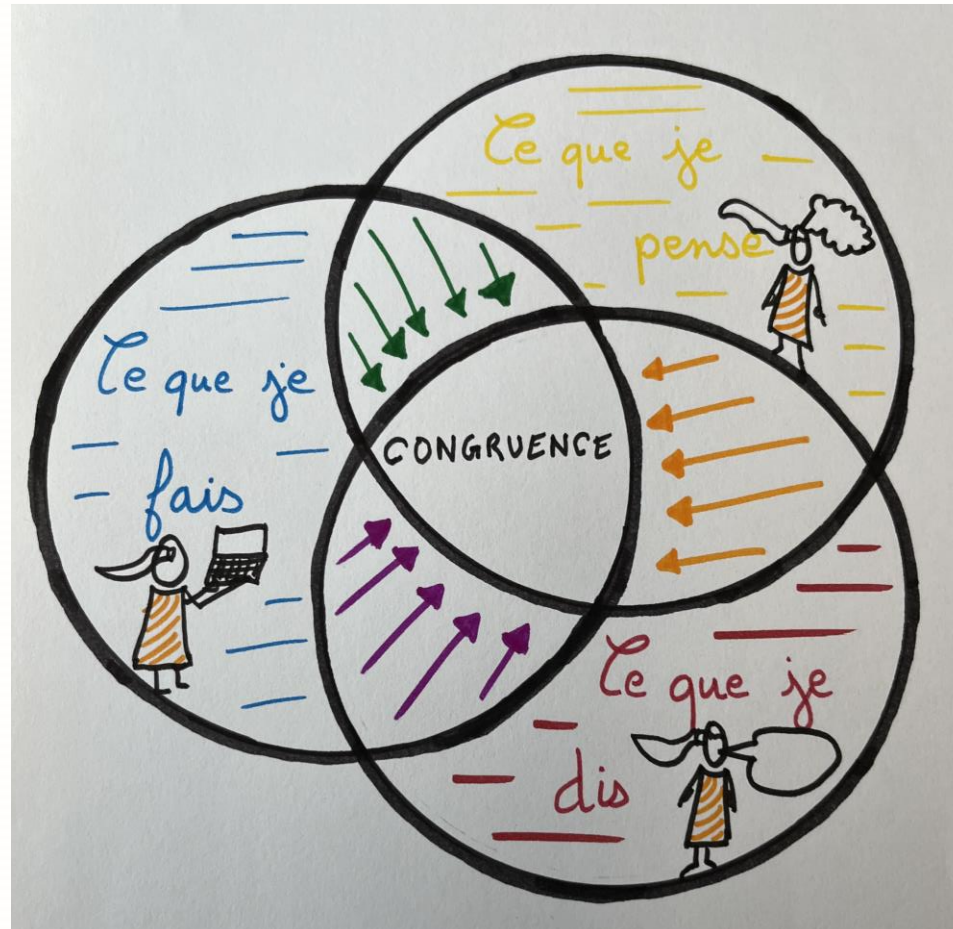 Ce que je
pense
Ce que je
fais
CONGRUENCE
Ce que je
dis